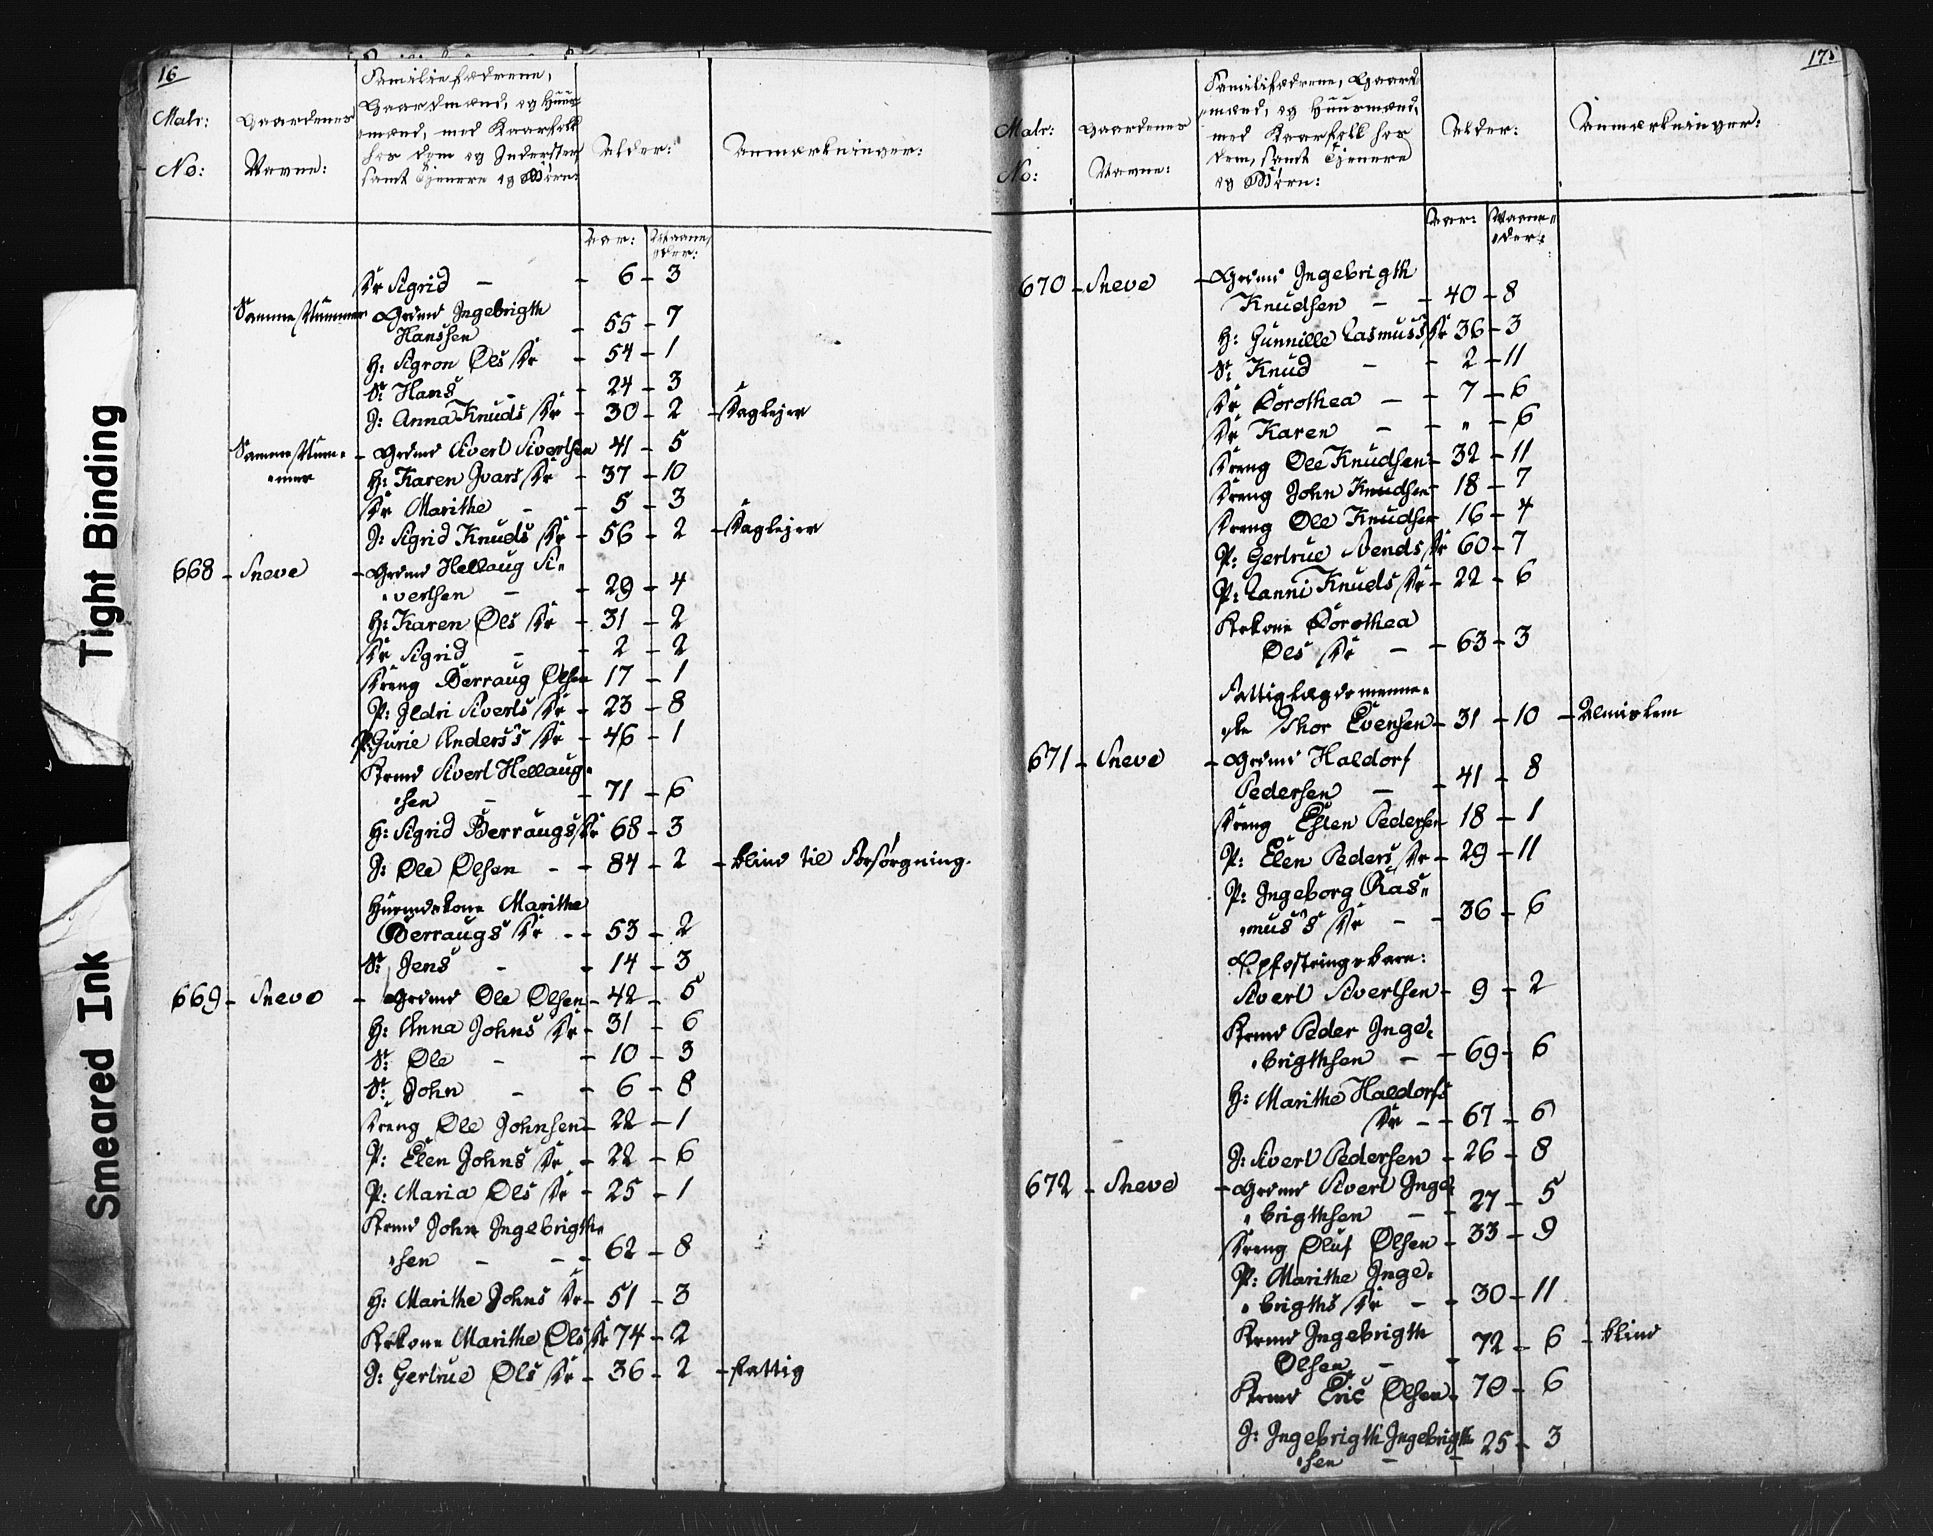 Tight Binding
Smeared Ink
16
Matr:
No:
Gaardenes
Navne:
Familiefædrene,
Gaardmænd, og Huus-
mænd, med Kaarfolk
hos dem og Inderster
samt Tjenere og Børn:
Alder:
Anmærkninger:
Aar: Maane/
der:
Dr Sigrid – – 6 – 3
Samme Nummer Grdmd Ingebrigth
Hanssen – 55 – 7
H: Sigron Ols Dr – 54 – 1
S: Hans – – 24 – 3
J: Anna Knuds Dr – 30 – 2 – Daglejer
Samme Num=
mer – Grdmd Sivert Sivertsen 41 – 5
H: Karen Ivars Dr – 37 – 10
Dr Marithe – – 5 – 3
J: Sigrid Knuds Dr – 56 – 2 – Daglejer
668 – Sneve – Grdmd Hellaug Si=
vertsen – – 29 – 4
H: Karen Ols Dr – 31 – 2
Dr Sigrid – – 2 – 2
Dreng Berraug Olsen 17 – 1
P: Ildri Siverts Dr – 23 – 8
P: Gurie Anders's Dr – 46 – 1
Krmd Sivert Hellaug=
sen – – 71 – 6
H: Sigrid Berraugs Dr 68 – 3
J: Ole Olsen – – 84 – 2 – blind til Forsørgning.
Husmdskone Marithe
Berraugs Dr – – 53 – 2
S: Jens – – 14 – 3
669 – Sneve – Grdmd Ole Olsen – 42 – 5
H: Anna Johns Dr – 31 – 6
S: Ole – – 10 – 3
S: John – – 6 – 8
Dreng Ole Johnsen – 22 – 1
P: Elen Johns Dr – 22 – 6
P: Maria Ols Dr – 25 – 1
Krmd John Ingebrigth=
sen – – – 62 – 8
H: Marithe Johns Dr – 51 – 3
Krkone Marithe Ols Dr 74 – 2
J: Gertrue Ols Dr – 36 – 2 – fattig
175
Matr:
No:
Gaardenes
Navne:
Familiefædrene, Gaard
mænd, og Huusmænd,
med Kaarfolk hos
dem, samt Tjenere
og Børn:
Alder:
Anmærkninger:
Aar: Maane=
der:
670 – Sneve – Grdmd Ingebrigth
Knudsen – – 40 – 8
H: Gunnille Rasmuss Dr 36 – 3
S: Knud – – 2 – 11
Dr Dorothea – – 7 – 6
Dr Karen – – " – 6
Dreng Ole Knudsen – 32 – 11
Dreng John Knudsen – 18 – 7
Dreng Ole Knudsen – 16 – 4
P: Gertrue Svends Dr 60 – 7
P: Ranni Knuds Dr – 22 – 6
Krkone Dorothea
Ols Dr – – 63 – 3
Fattiglægdsmenne=
ske Thor Evensen – 31 – 10 – Almislem
671 – Sneve – Grdmd Haldorf
Pedersen – – 41 – 8
Dreng Esten Pedersen 18 – 1
P: Elen Peders Dr – 29 – 11
P: Ingeborg Ras=
mus's Dr – – 36 – 6
Opfostringsbarn:
Sivert Sivertsen – 9 – 2
Krmd Peder Inge=
brigthsen – – 69 – 6
H: Marithe Haldorfs
Dr – – 67 – 6
J: Sivert Pedersen – 26 – 8
672 – Sneve – Grdmd Sivert Inge=
brigthsen – – 27 – 5
Dreng Oluf Olsen – 33 – 9
P: Marithe Inge=
brigths Dr – – 30 – 11
Krmd Ingebrigth
Olsen – – 72 – 6 – blind
Krmd Eric Olsen – 70 – 6
J: Ingebrigth Ingebrigth
sen – – 25 – 3